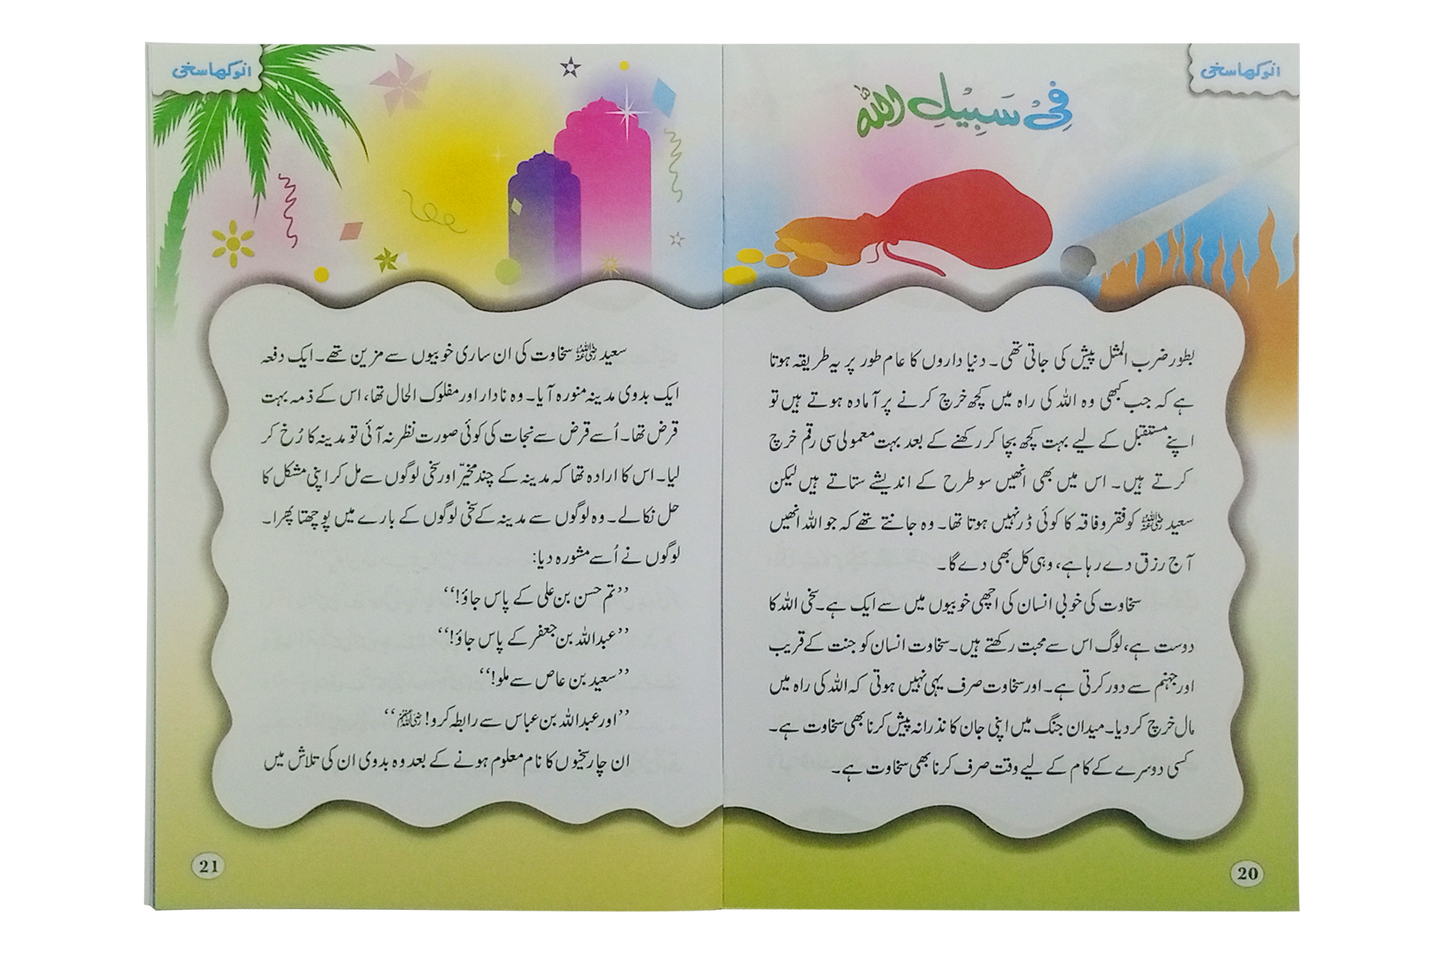 انوکھا سخی
فِیْ سَبِیْلِ اللّٰہ
بطور ضرب المثل پیش کی جاتی تھی۔ دنیا داروں کا عام طور پر یہ طریقہ ہوتا
ہے کہ جب کبھی وہ اللہ کی راہ میں کچھ خرچ کرنے پر آمادہ ہوتے ہیں تو
اپنے مستقبل کے لیے بہت کچھ بچا کر رکھنے کے بعد بہت معمولی سی رقم خرچ
کرتے ہیں۔ اس میں بھی انھیں سو طرح کے اندیشے ستاتے ہیں لیکن
سعید رضی اللہ عنہ کو فقر و فاقہ کا کوئی ڈر نہیں ہوتا تھا۔ وہ جانتے تھے کہ جو اللہ انھیں
آج رزق دے رہا ہے، وہی کل بھی دے گا۔
سخاوت کی خوبی انسان کی اچھی خوبیوں میں سے ایک ہے۔ سخی اللہ کا
دوست ہے، لوگ اس سے محبت رکھتے ہیں۔ سخاوت انسان کو جنت کے قریب
اور جہنم سے دور کرتی ہے۔ اور سخاوت صرف یہی نہیں ہوتی کہ اللہ کی راہ میں
مال خرچ کر دیا۔ میدان جنگ میں اپنی جان کا نذرانہ پیش کرنا بھی سخاوت ہے۔
کسی دوسرے کے کام کے لیے وقت صرف کرنا بھی سخاوت ہے۔
20
انوکھا سخی
سعید رضی اللہ عنہ سخاوت کی ان ساری خوبیوں سے مزین تھے۔ ایک دفعہ
ایک بدوی مدینہ منورہ آیا۔ وہ نادار اور مفلوک الحال تھا، اس کے ذمہ بہت
قرض تھا۔ اُسے قرض سے نجات کی کوئی صورت نظر نہ آئی تو مدینہ کا رُخ کر
لیا۔ اس کا ارادہ تھا کہ مدینہ کے چند مخیّر اور سخی لوگوں سے مل کر اپنی مشکل کا
حل نکالے۔ وہ لوگوں سے مدینہ کے سخی لوگوں کے بارے میں پوچھتا پھرا۔
لوگوں نے اُسے مشورہ دیا:
’’تم حسن بن علی کے پاس جاؤ!‘‘
’’عبداللہ بن جعفر کے پاس جاؤ!‘‘
’’سعید بن عاص سے ملو!‘‘
’’اور عبداللہ بن عباس سے رابطہ کرو!‘‘
ان چار سخیوں کا نام معلوم ہونے کے بعد وہ بدوی ان کی تلاش میں
21